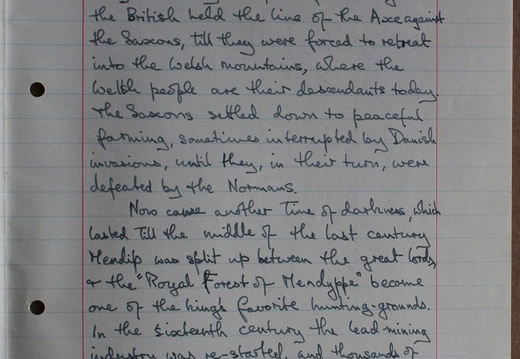 the British held the line of the Axe against
the Saxons, till they were forced to retreat
into the Welsh mountains, where the
Welsh people are their descendants today.
The Saxons settled down to peaceful
farming, sometimes interrupted by Danish
invasions, until they, in their turn, were
defeated by the Normans.
Now came another Time of darkness, which
lasted Till the middle of the last century
Mendip was split up between the great lords,
& the "Royal Forest of Mendyppe" became
one of the king's favorite hunting-grounds.
In the sixteenth century the lead-mining
industry was re-started, and thousands of